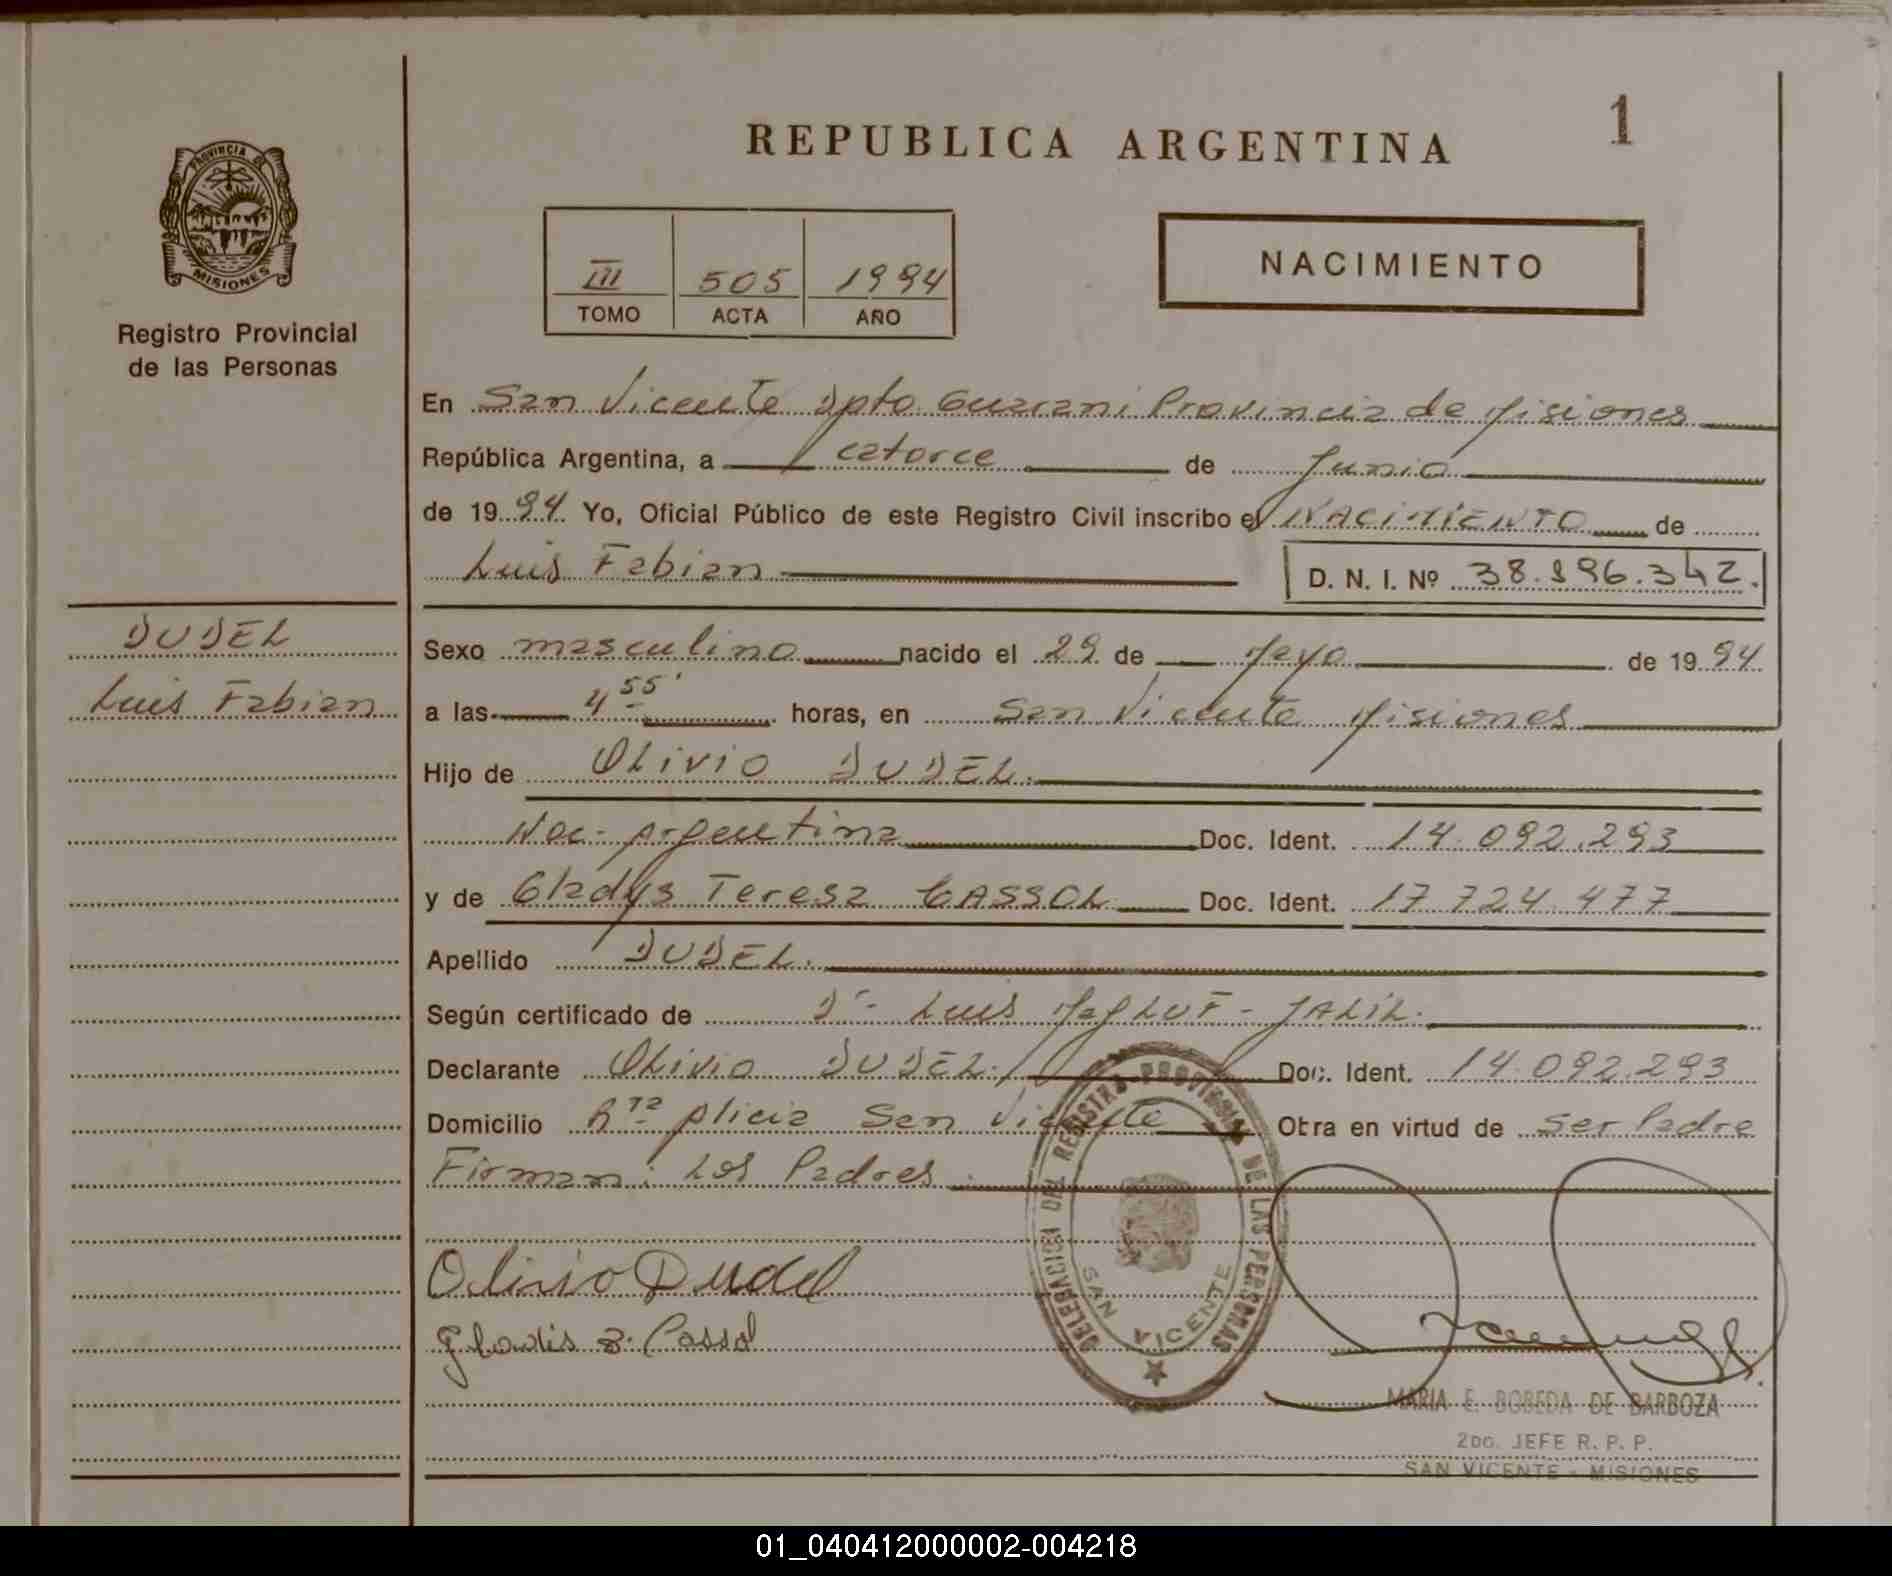 REPUBLICA ARGENTINA
1
PROVINCIA DE
MISIONES
Registro Provincial
de las Personas
III 505 1994
TOMO ACTA AÑO
NACIMIENTO
En San Vicente Dpto Guarani Provincia de Misiones
República Argentina, a catorce de Junio
de 1994 Yo, Oficial Público de este Registro Civil inscribo el NACIMIENTO de
Luis Fabian D. N. I. Nº 38.196.342.
DUDEL
Luis Fabian
Sexo masculino nacido el 29 de Mayo de 1994
a las 4 55' horas, en San Vicente Misiones
Hijo de OLIVIO DUDEL.
Nac. Argentina Doc. Ident. 14.092.293
y de Gladys Teresa CASSOL Doc. Ident. 17 724 477
Apellido DUDEL.
Según certificado de Dr. Luis MagLUF - JALIL.
Declarante Olivio DUDEL. Doc. Ident. 14.092.293
Domicilio Rta Alicia San Vicente Obra en virtud de ser Padre
Firman: Los Padres.
Olivio Dudel
Gladis B. Cassol
DELEGACION DEL REGISTRO PROVINCIAL DE LAS PERSONAS
SAN VICENTE
MARIA E. BOBEDA DE BARBOZA
2DO. JEFE R. P. P.
SAN VICENTE - MISIONES
01_040412000002-004218